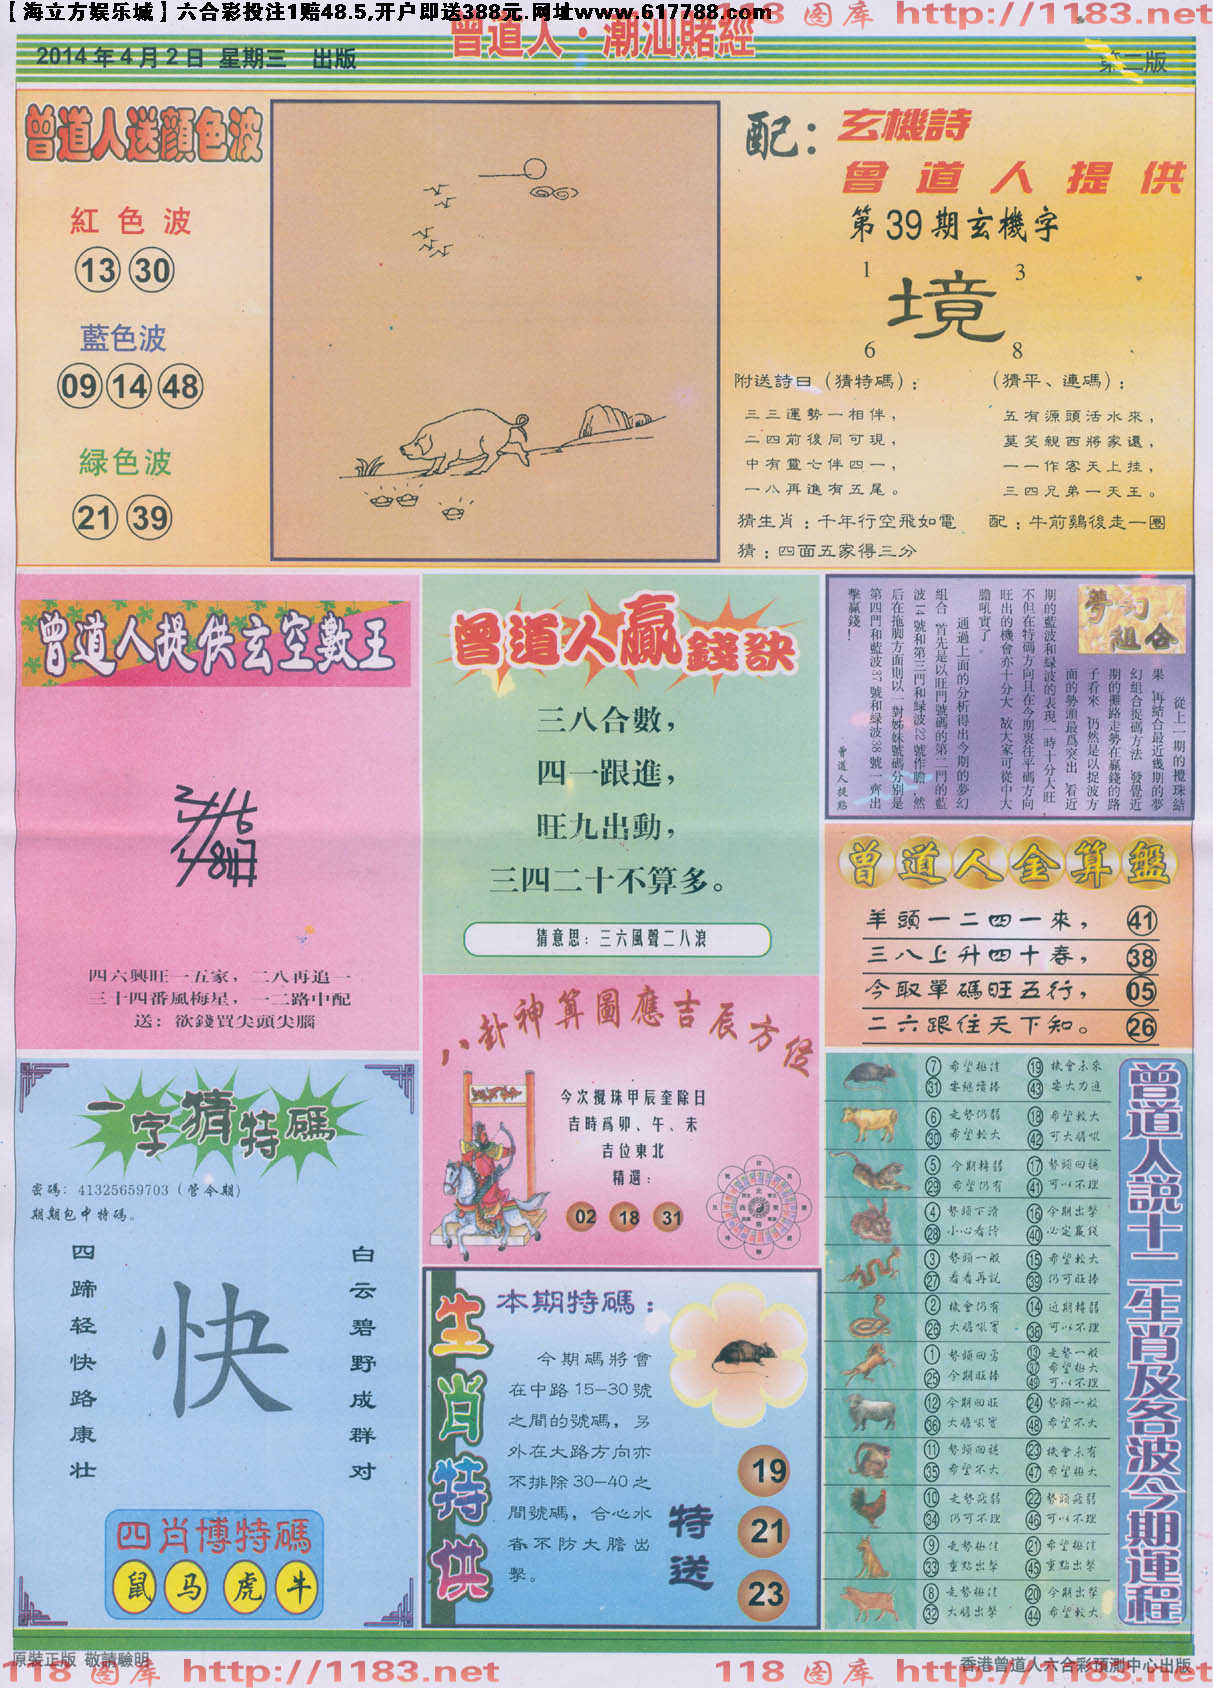 【海立方娱乐城】六合彩投注1赔48.5,开户即送388元.网址www.617788.com
118 图库 http://1183.net
曾道人·潮汕賭經
2014年4月2日 星期三 出版
第二版
曾道人送顔色波
紅色波
13 30
藍色波
09 14 48
緑色波
21 39
配：玄機詩
曾道人提供
第39期玄機字
1 3
境
6 8
附送詩曰（猜特碼）：
三三運勢一相伴，
二四前後同可現，
中有靈七伴四一，
一八再進有五尾。
（猜平、連碼）：
五有源頭活水來，
莫笑親西將家還，
一一作客天上挂，
三四兄弟一天王。
猜生肖：千年行空飛如電
配：牛前鷄後走一圈
猜：四面五家得三分
曾道人提供玄空數王
四六興旺一五家，二八再追一
三十四番風梅星，一二路中配
送：欲錢買尖頭尖腦
曾道人贏錢訣
三八合數，
四一跟進，
旺九出動，
三四二十不算多。
猜意思：三六風聲二八浪
夢幻組合
從上一期的攪珠結
果，再結合最近幾期的夢
幻組合捉碼方法，發覺近
期的攤路走勢在贏錢的路
子看來，仍然是以捉波方
面的勢頭最爲突出，看近
期的藍波和緑波的表現一時十分大旺，
不但在特碼方向且在今期裏往平碼方向
旺出的機會亦十分大，故大家可從中大
膽吼實了。
通過上面的分析得出今期的夢幻
組合，首先是以旺門號碼的第二門的藍
波14號和第三門和緑波22號作膽，然
后在拖脚方面則以一對姊妹號碼分别是
第四門和藍波37號和緑波38號一齊出
擊贏錢！
曾道人提點
曾道人金算盤
羊頭一二四一來， 41
三八上升四十春， 38
今取單碼旺五行， 05
二六跟住天下知。 26
八卦神算圖應吉辰方位
今次攪珠甲辰奎除日
吉時爲卯、午、未
吉位東北
精選：
02 18 31
一字猜特碼
密碼：41325659703（管今期）
期期包中特碼。
四蹄轻快路康壮
快
白云碧野成群对
四肖博特碼
鼠 马 虎 牛
生肖特供
本期特碼：
今期碼將會
在中路15—30號
之間的號碼，另
外在大路方向亦
不排除30—40之
間號碼，合心水
者不防大膽出
擊。
特送
19
21
23
曾道人説十二生肖及各波今期運程
7 希望極佳 19 機會未來
31 安穩讀捧 43 安大力追
6 走勢仍弱 18 希望較大
30 希望較大 42 可大膽吼
5 今期轉弱 17 勢頭回穩
29 希望仍有 41 可以不理
4 勢頭下滑 16 今期出擊
28 小心看待 40 必定贏錢
3 勢頭一般 15 希望較大
27 看看再説 39 仍可旺捧
2 機會仍有 14 近期轉弱
26 大膽吼實 38 可以不理
1 勢頭回勇 13 走勢一般
25 今期旺捧 37 希望極大
49 可以不理
12 今期回旺 24 勢頭一般
36 大膽吼實 48 希望不大
11 勢頭回穩 23 機會未有
35 希望不大 47 希望極大
10 走勢疲弱 22 勢頭疲弱
34 仍可不理 46 可以不理
9 走勢極佳 21 希望極佳
33 重點出擊 45 重點出擊
8 走勢極佳 20 今期出擊
32 大膽出擊 44 希望較大
原裝正版 敬請驗明
香港曾道人六合彩預測中心出版
118 图库 http://1183.net
118 图库 http://1183.net